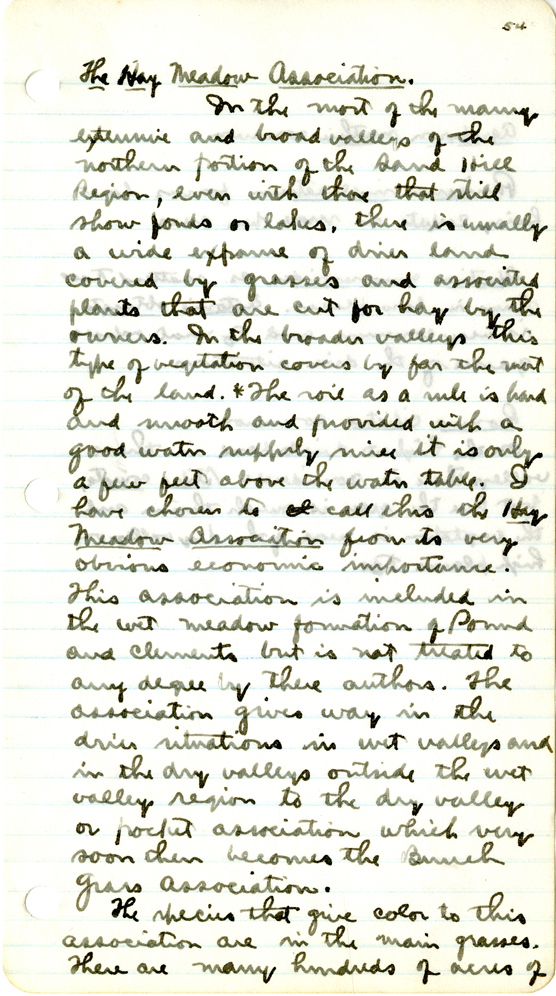 54
The Hay Meadow Association.
In the most of the many
extensive and broad valleys of the
northern portion of the Sand Hill
Region, even with those that still
show ponds or lakes, there is usually
a wide expanse of drier land
covered by grasses and associated
plants that are cut for hay by the
owners. In the broader valleys this
type of vegetation covers by far the most
of the land. *The soil as a rule is hard
and smooth and provided with a
good water supply since it is only
a few feet above the water table. I
have chosen to call this the Hay
Meadow Association from its very
obvious economic importance.
This association is included in
the wet meadow formation of Pound
and Clements but is not treated to
any degree by these authors. The
association gives way in the
drier situations in wet valleys and
in the dry valleys outside the wet
valley region to the dry valley
or pocket association which very
soon then becomes the Bunch
Grass Association.
The species that give color to this
association are in the main grasses.
There are many hundreds of acres of